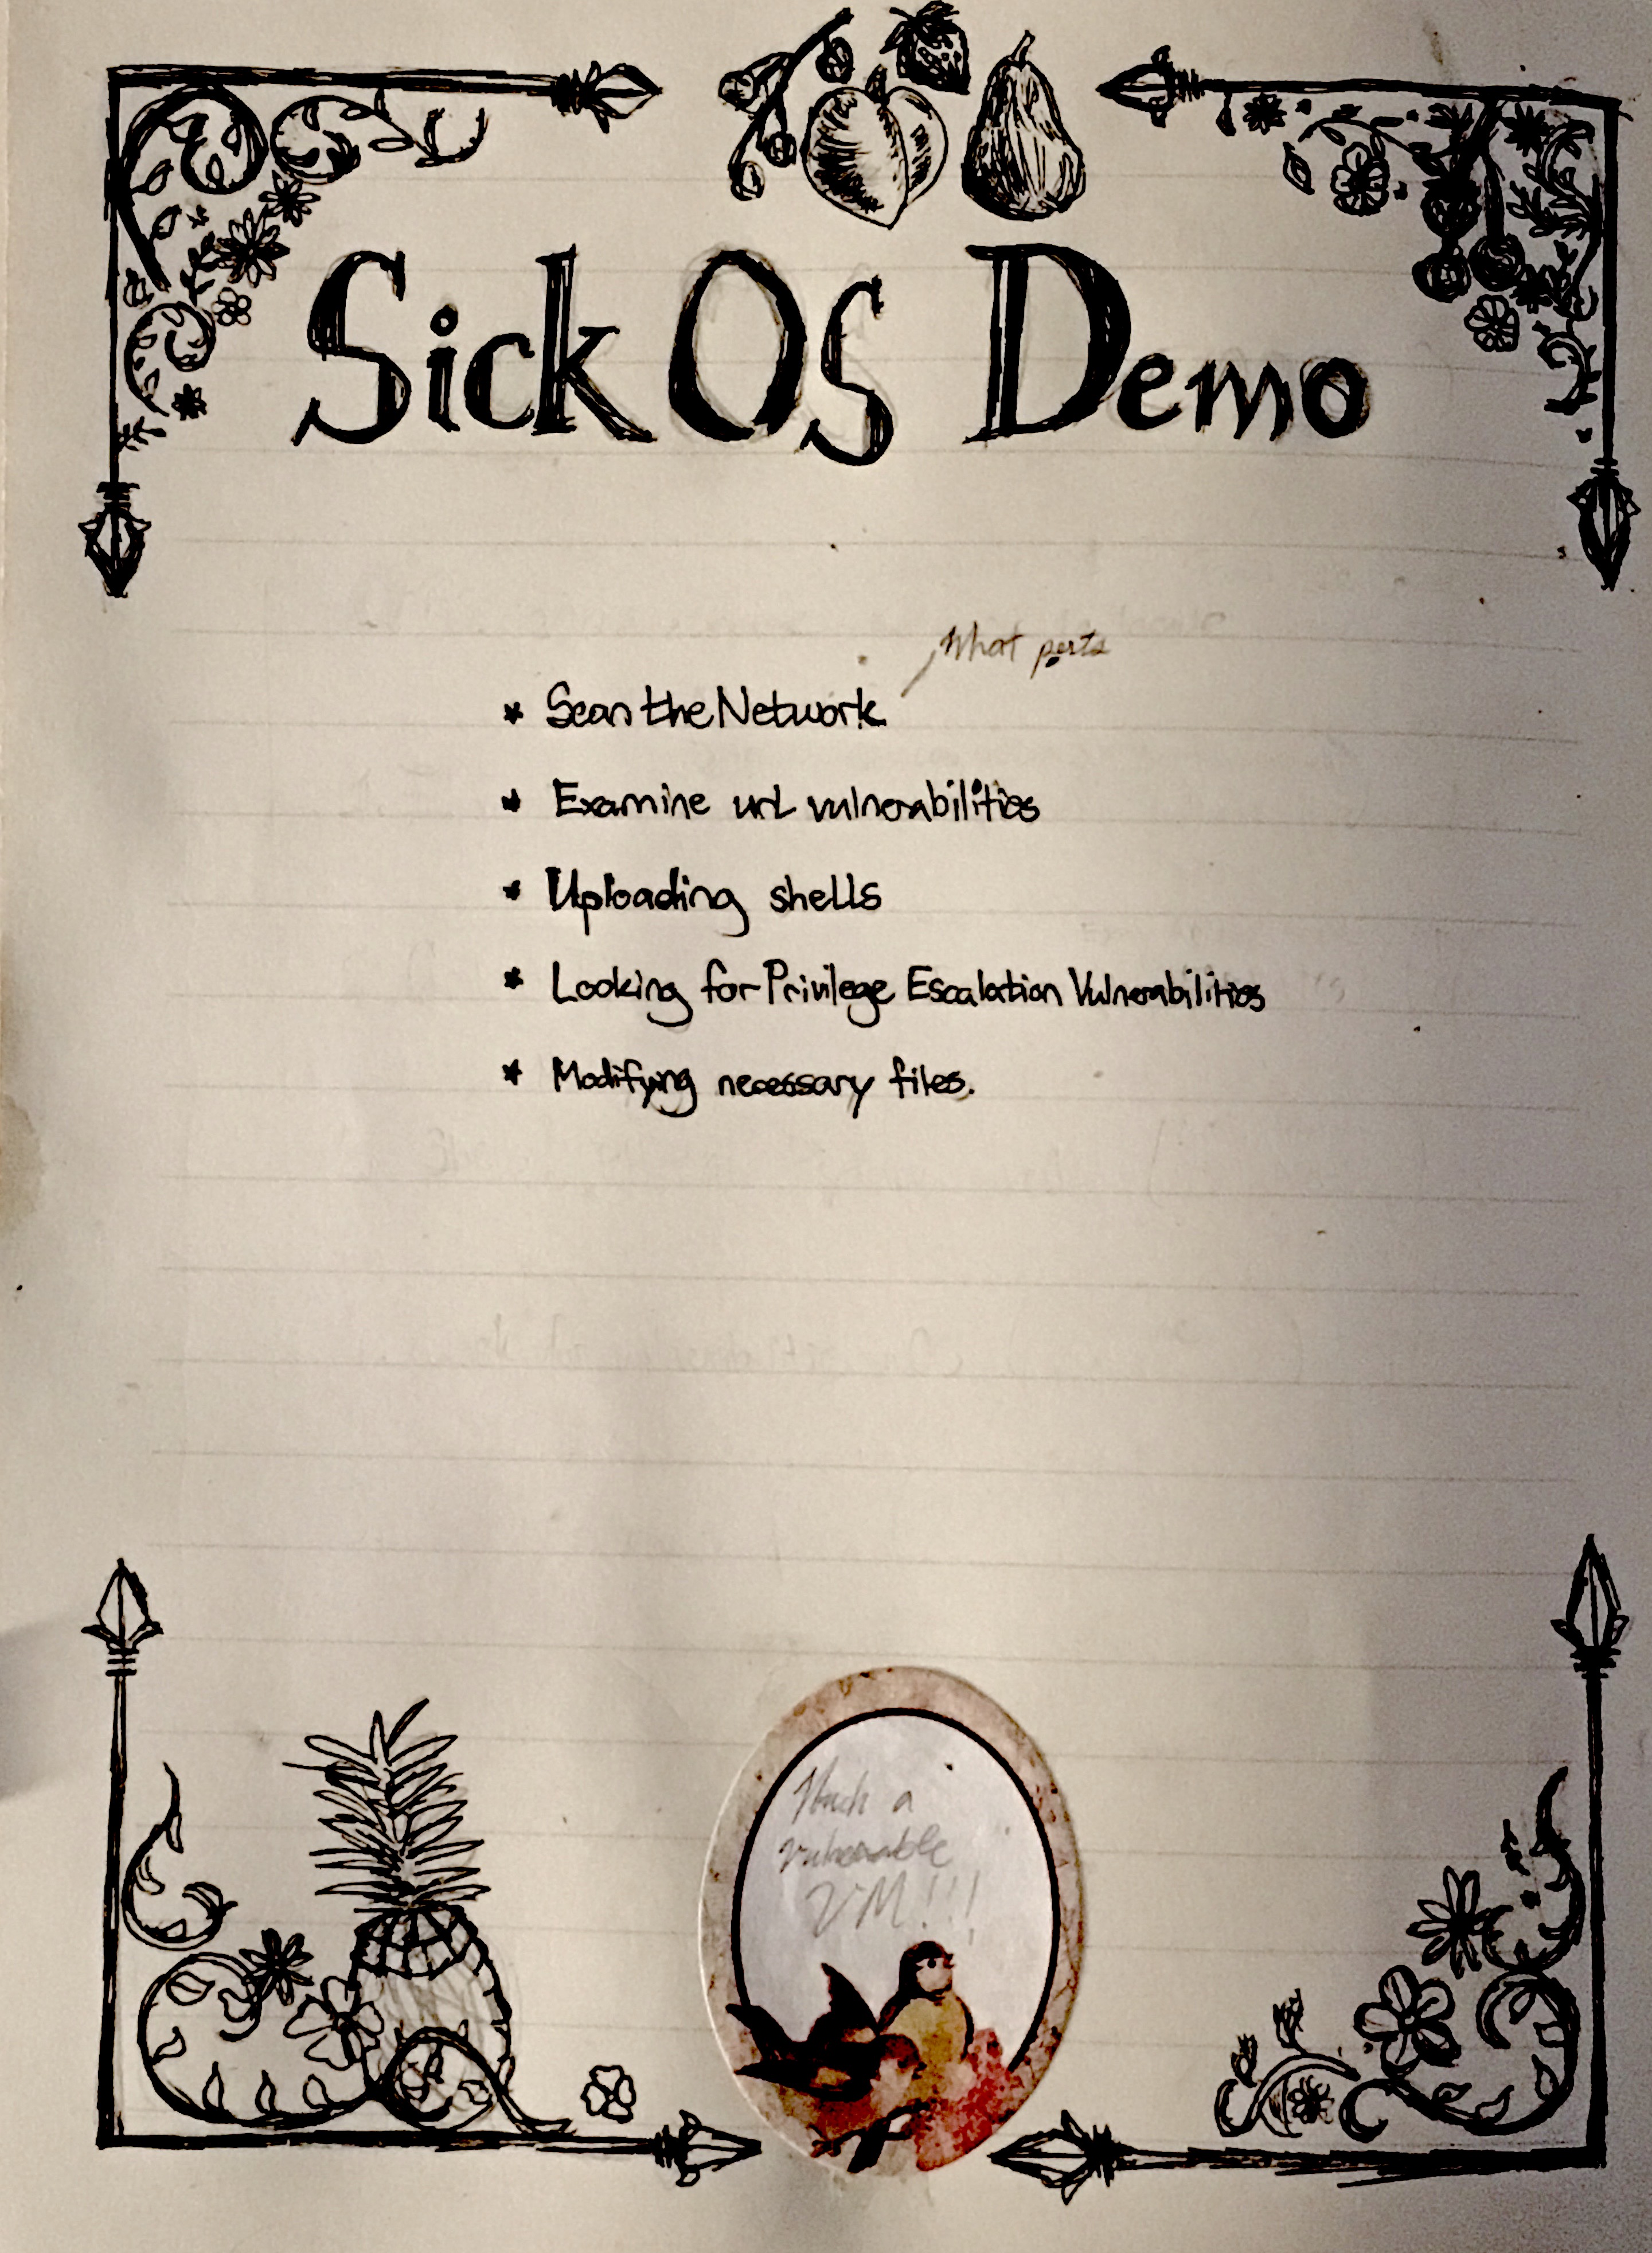 Sick Os Demo
What ports
* Scan the Network
* Examine url vulnerabilities
* Uploading shells
* Looking for Privilege Escalation Vulnerabilities
* Modifying necessary files.
Hack a
vulnerable
VM!!!